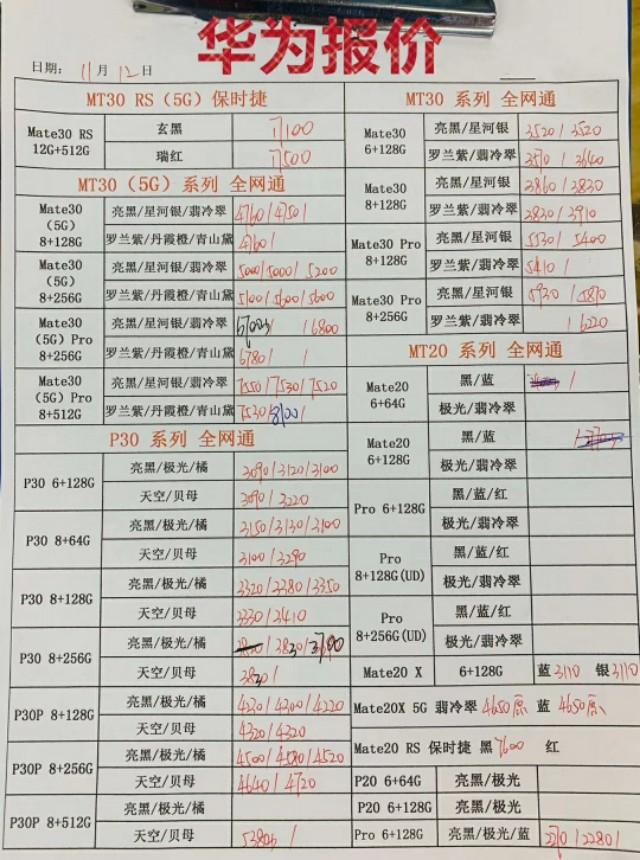 华为报价
日期： 11月 12日
MT30 RS（5G）保时捷
Mate30 RS 12G+512G
玄黑 7100
瑞红 7500
MT30（5G）系列 全网通
Mate30（5G）8+128G
亮黑/星河银/翡冷翠 4760/4750/
罗兰紫/丹霞橙/青山黛 4760/
Mate30（5G）8+256G
亮黑/星河银/翡冷翠 5000/5000/5200
罗兰紫/丹霞橙/青山黛 5100/5600/5600
Mate30（5G）Pro 8+256G
亮黑/星河银/翡冷翠 /6800
罗兰紫/丹霞橙/青山黛 6780/ /
Mate30（5G）Pro 8+512G
亮黑/星河银/翡冷翠 7550/7530/7520
罗兰紫/丹霞橙/青山黛 7530/8100/
P30 系列 全网通
P30 6+128G
亮黑/极光/橘 3090/3120/3100
天空/贝母 3090/3220
P30 8+64G
亮黑/极光/橘 3150/3130/3100
天空/贝母 3100/3290
P30 8+128G
亮黑/极光/橘 3320/3280/3350
天空/贝母 3330/3410
P30 8+256G
亮黑/极光/橘 /3830/3700
天空/贝母 3830/
P30P 8+128G
亮黑/极光/橘 4230/4200/4220
天空/贝母 4320/4320
P30P 8+256G
亮黑/极光/橘 4500/4580/4520
天空/贝母 4640/4720
P30P 8+512G
亮黑/极光/橘
天空/贝母 /
MT30 系列 全网通
Mate30 6+128G
亮黑/星河银 3520/3520
罗兰紫/翡冷翠 3570/3640
Mate30 8+128G
亮黑/星河银 3860/3830
罗兰紫/翡冷翠 3830/3910
Mate30 Pro 8+128G
亮黑/星河银 5530/5400
罗兰紫/翡冷翠 5410/
Mate30 Pro 8+256G
亮黑/星河银 5930/5870
罗兰紫/翡冷翠 /6220
MT20 系列 全网通
Mate20 6+64G
黑/蓝 /
极光/翡冷翠
Mate20 6+128G
黑/蓝
极光/翡冷翠
Pro 6+128G
黑/蓝/红
极光/翡冷翠
Pro 8+128G(UD)
黑/蓝/红
极光/翡冷翠
Pro 8+256G(UD)
黑/蓝/红
极光/翡冷翠
Mate20 X 6+128G 蓝 3110 银 3110
Mate20X 5G 翡冷翠 4650原 蓝 4650原
Mate20 RS 保时捷 黑 7600 红
P20 6+64G 亮黑/极光
P20 6+128G 亮黑/极光
Pro 6+128G 亮黑/极光/蓝 2270/2280/